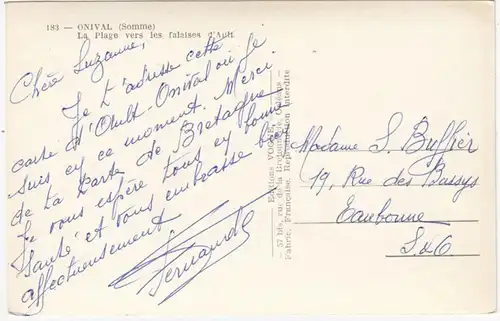 183 — ONIVAL (Somme)
La Plage vers les falaises d'Ault
Chère Suzanne,
Je t'adresse cette
carte d'Ault-Onival où je
suis en ce moment. Merci
de ta carte de Bretagne
Je vous espère tous en bonne
santé et vous embrasse bien
affectueusement
Fernande
Editions VOGUE
57 bis, rue de la
Fabric. Française, Reproduction interdite
Madame S. Buffier
19, Rue des Bussys
Eaubonne
S.&O.